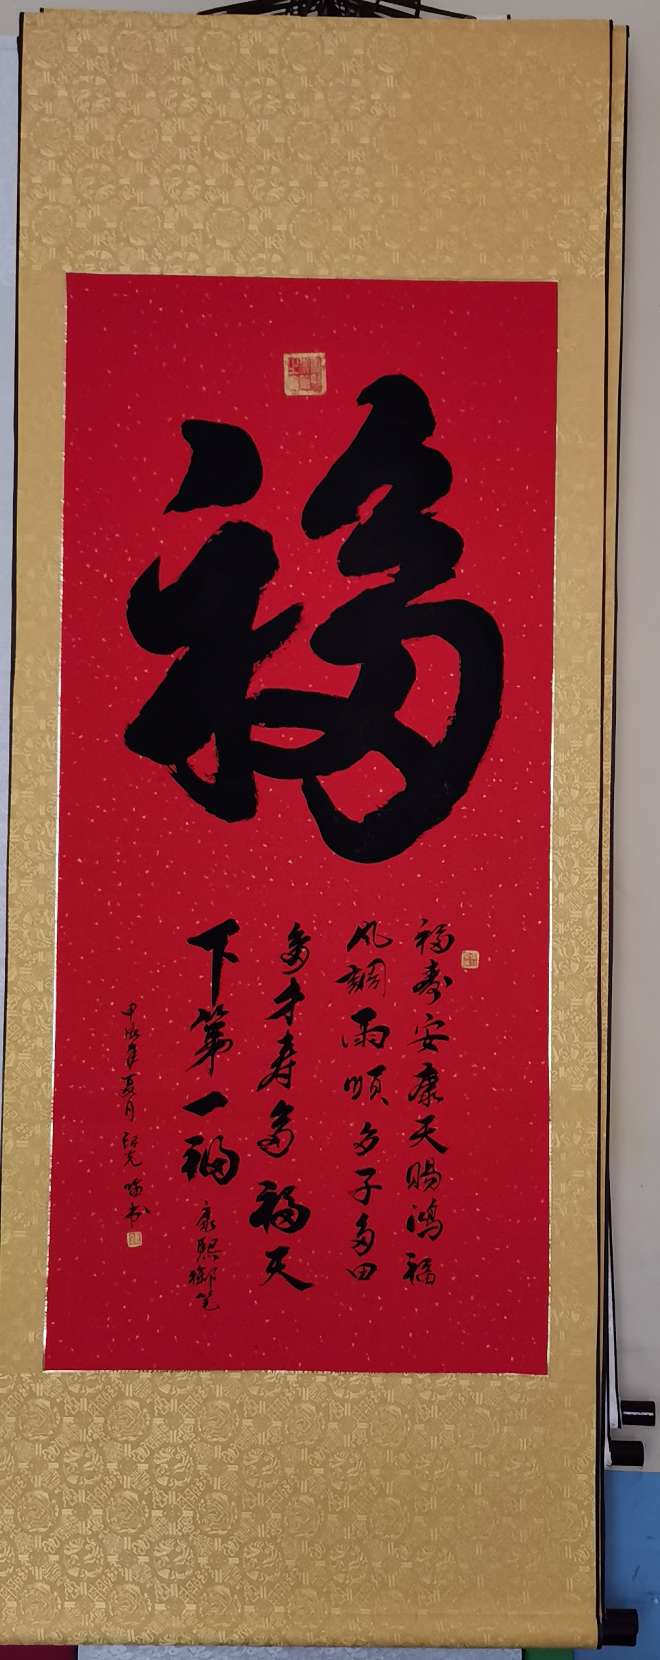 福
福寿安康天赐鸿福
风調雨順多子多田
多才寿多福天
下第一福
康熙御笔
夏月
书